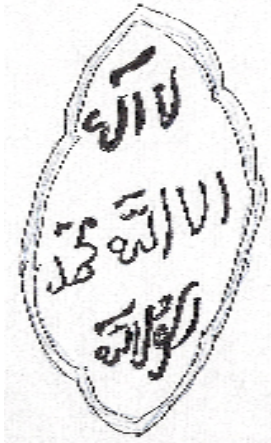 لا اله
الا الله محمد
رسول الله